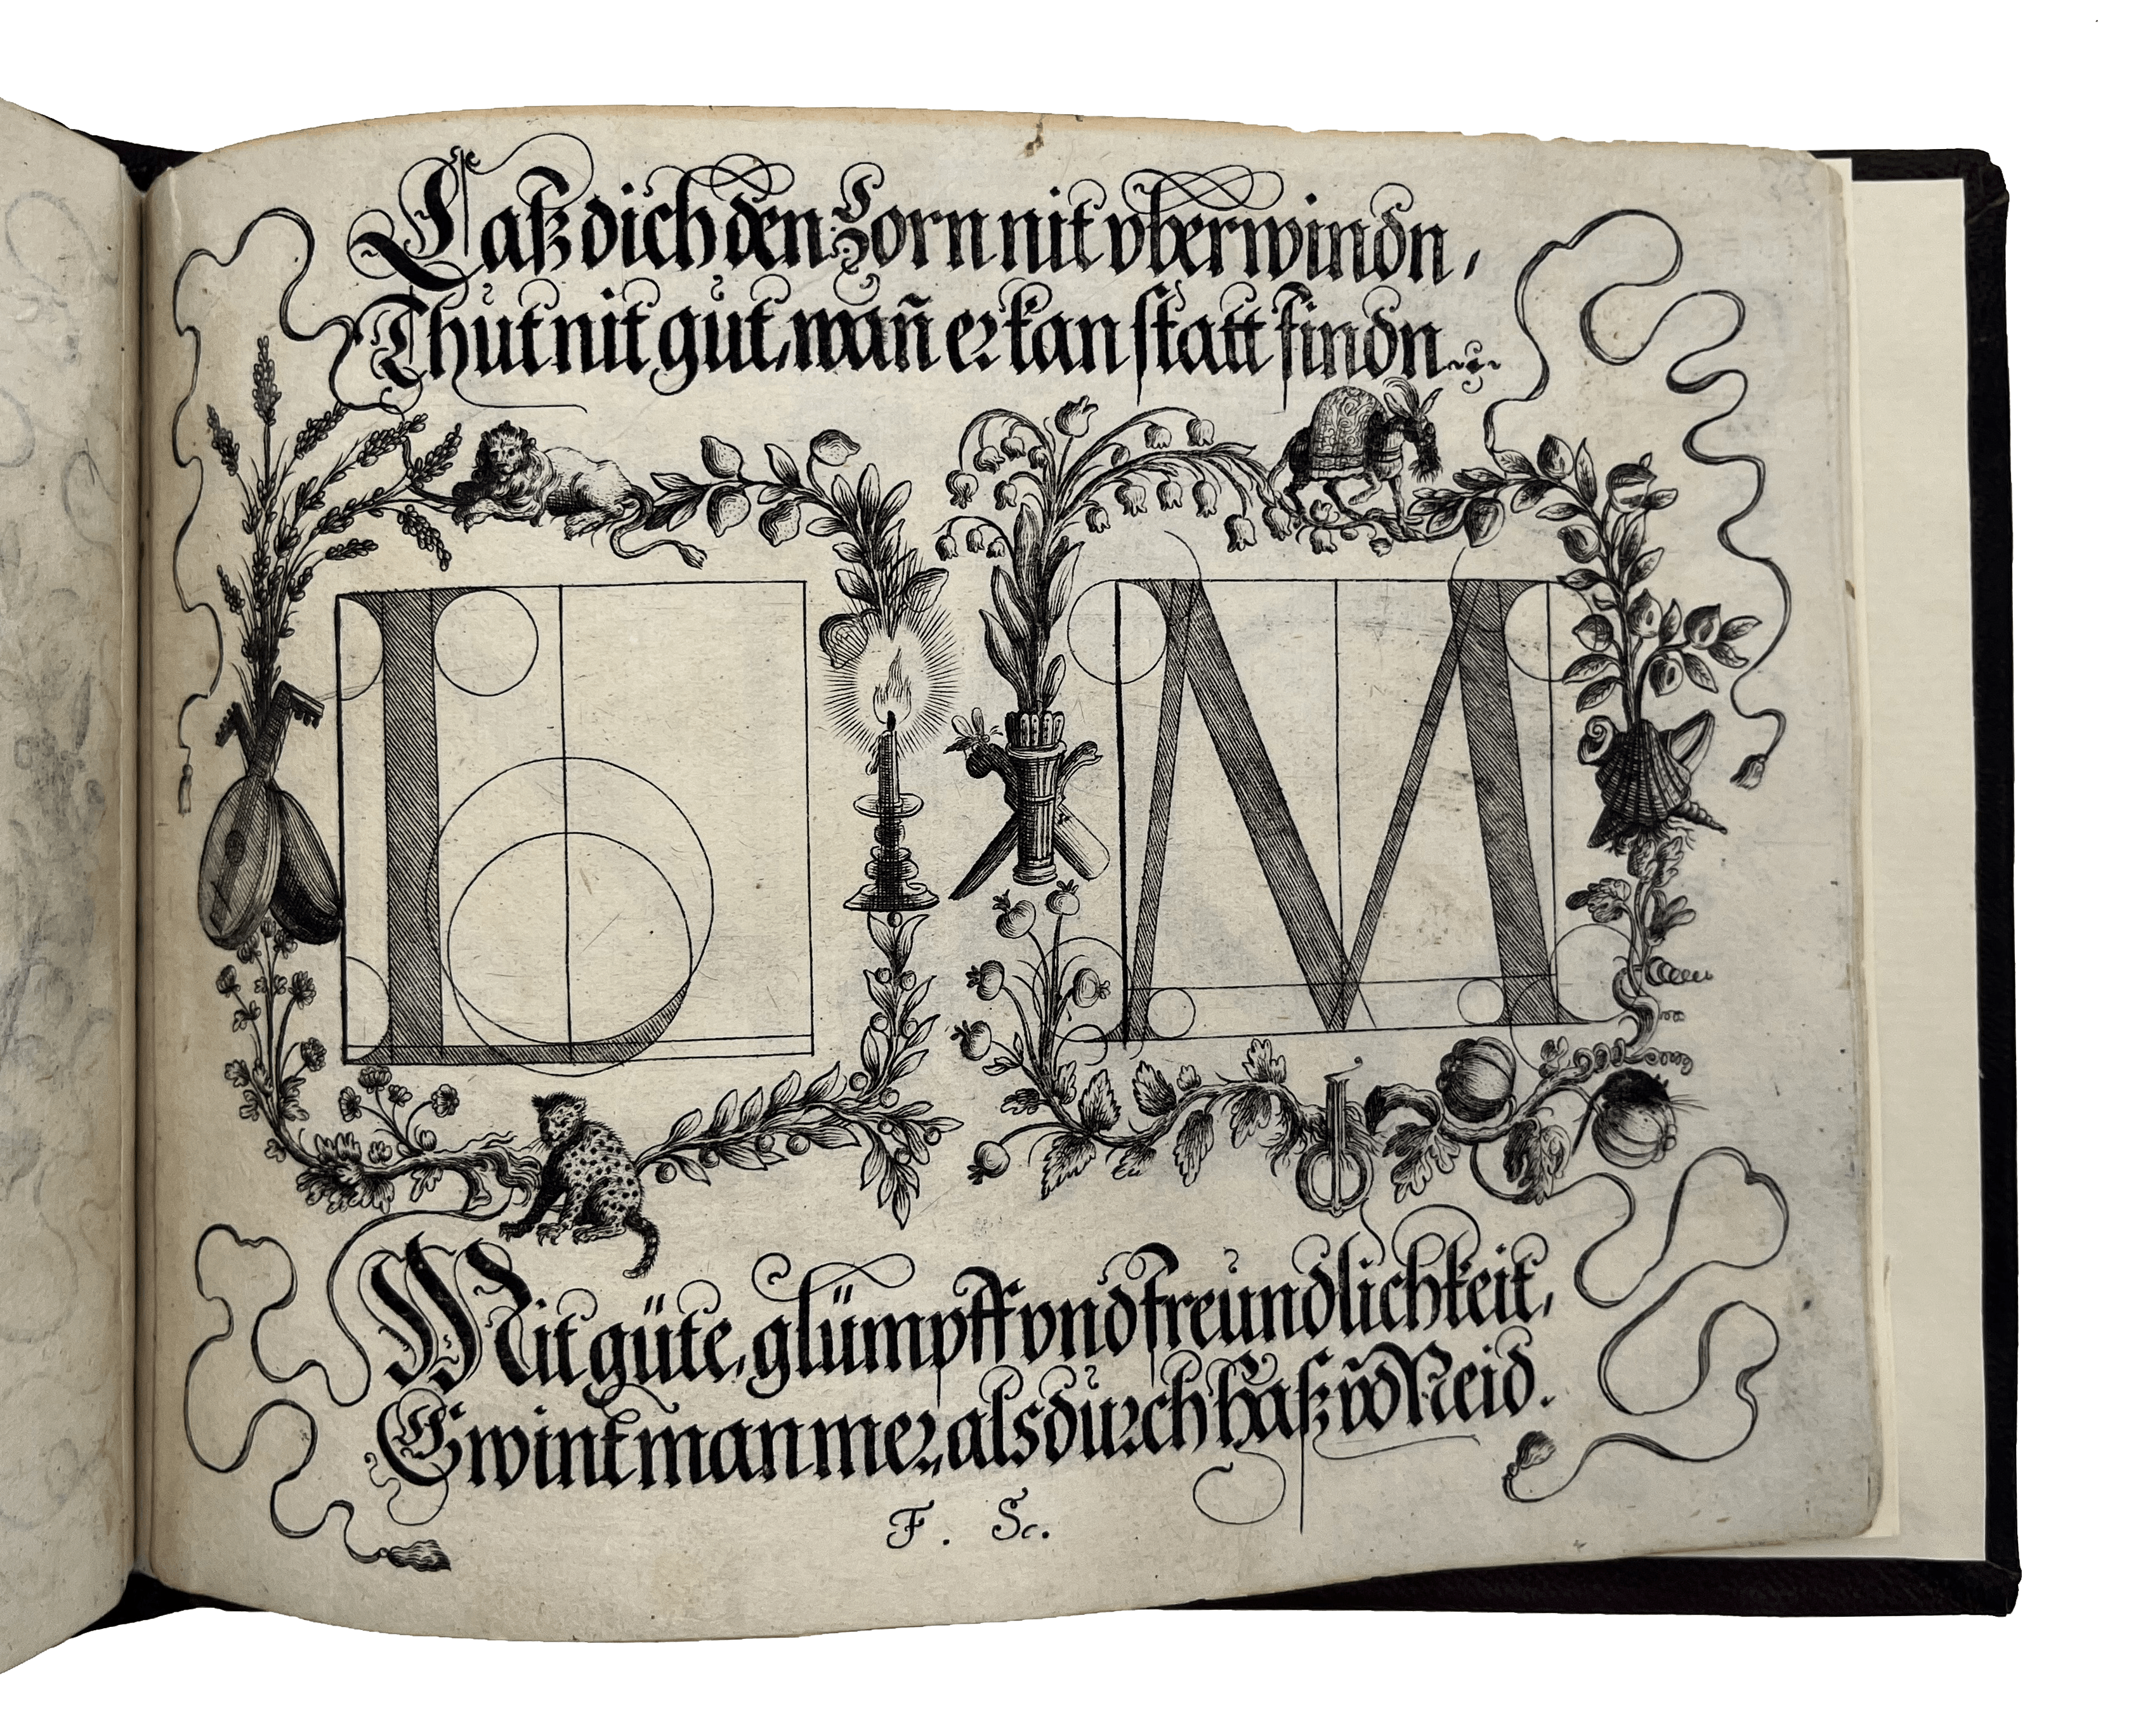 Laß dich den Zorn nit vberwindn,
Thut nit gut, wañ er kan statt findn.
L M
Mit güte, glümpff vnd freündlichkeit,
Gwint man mer, als durch haß vn̄d Neid.
F. Sc.